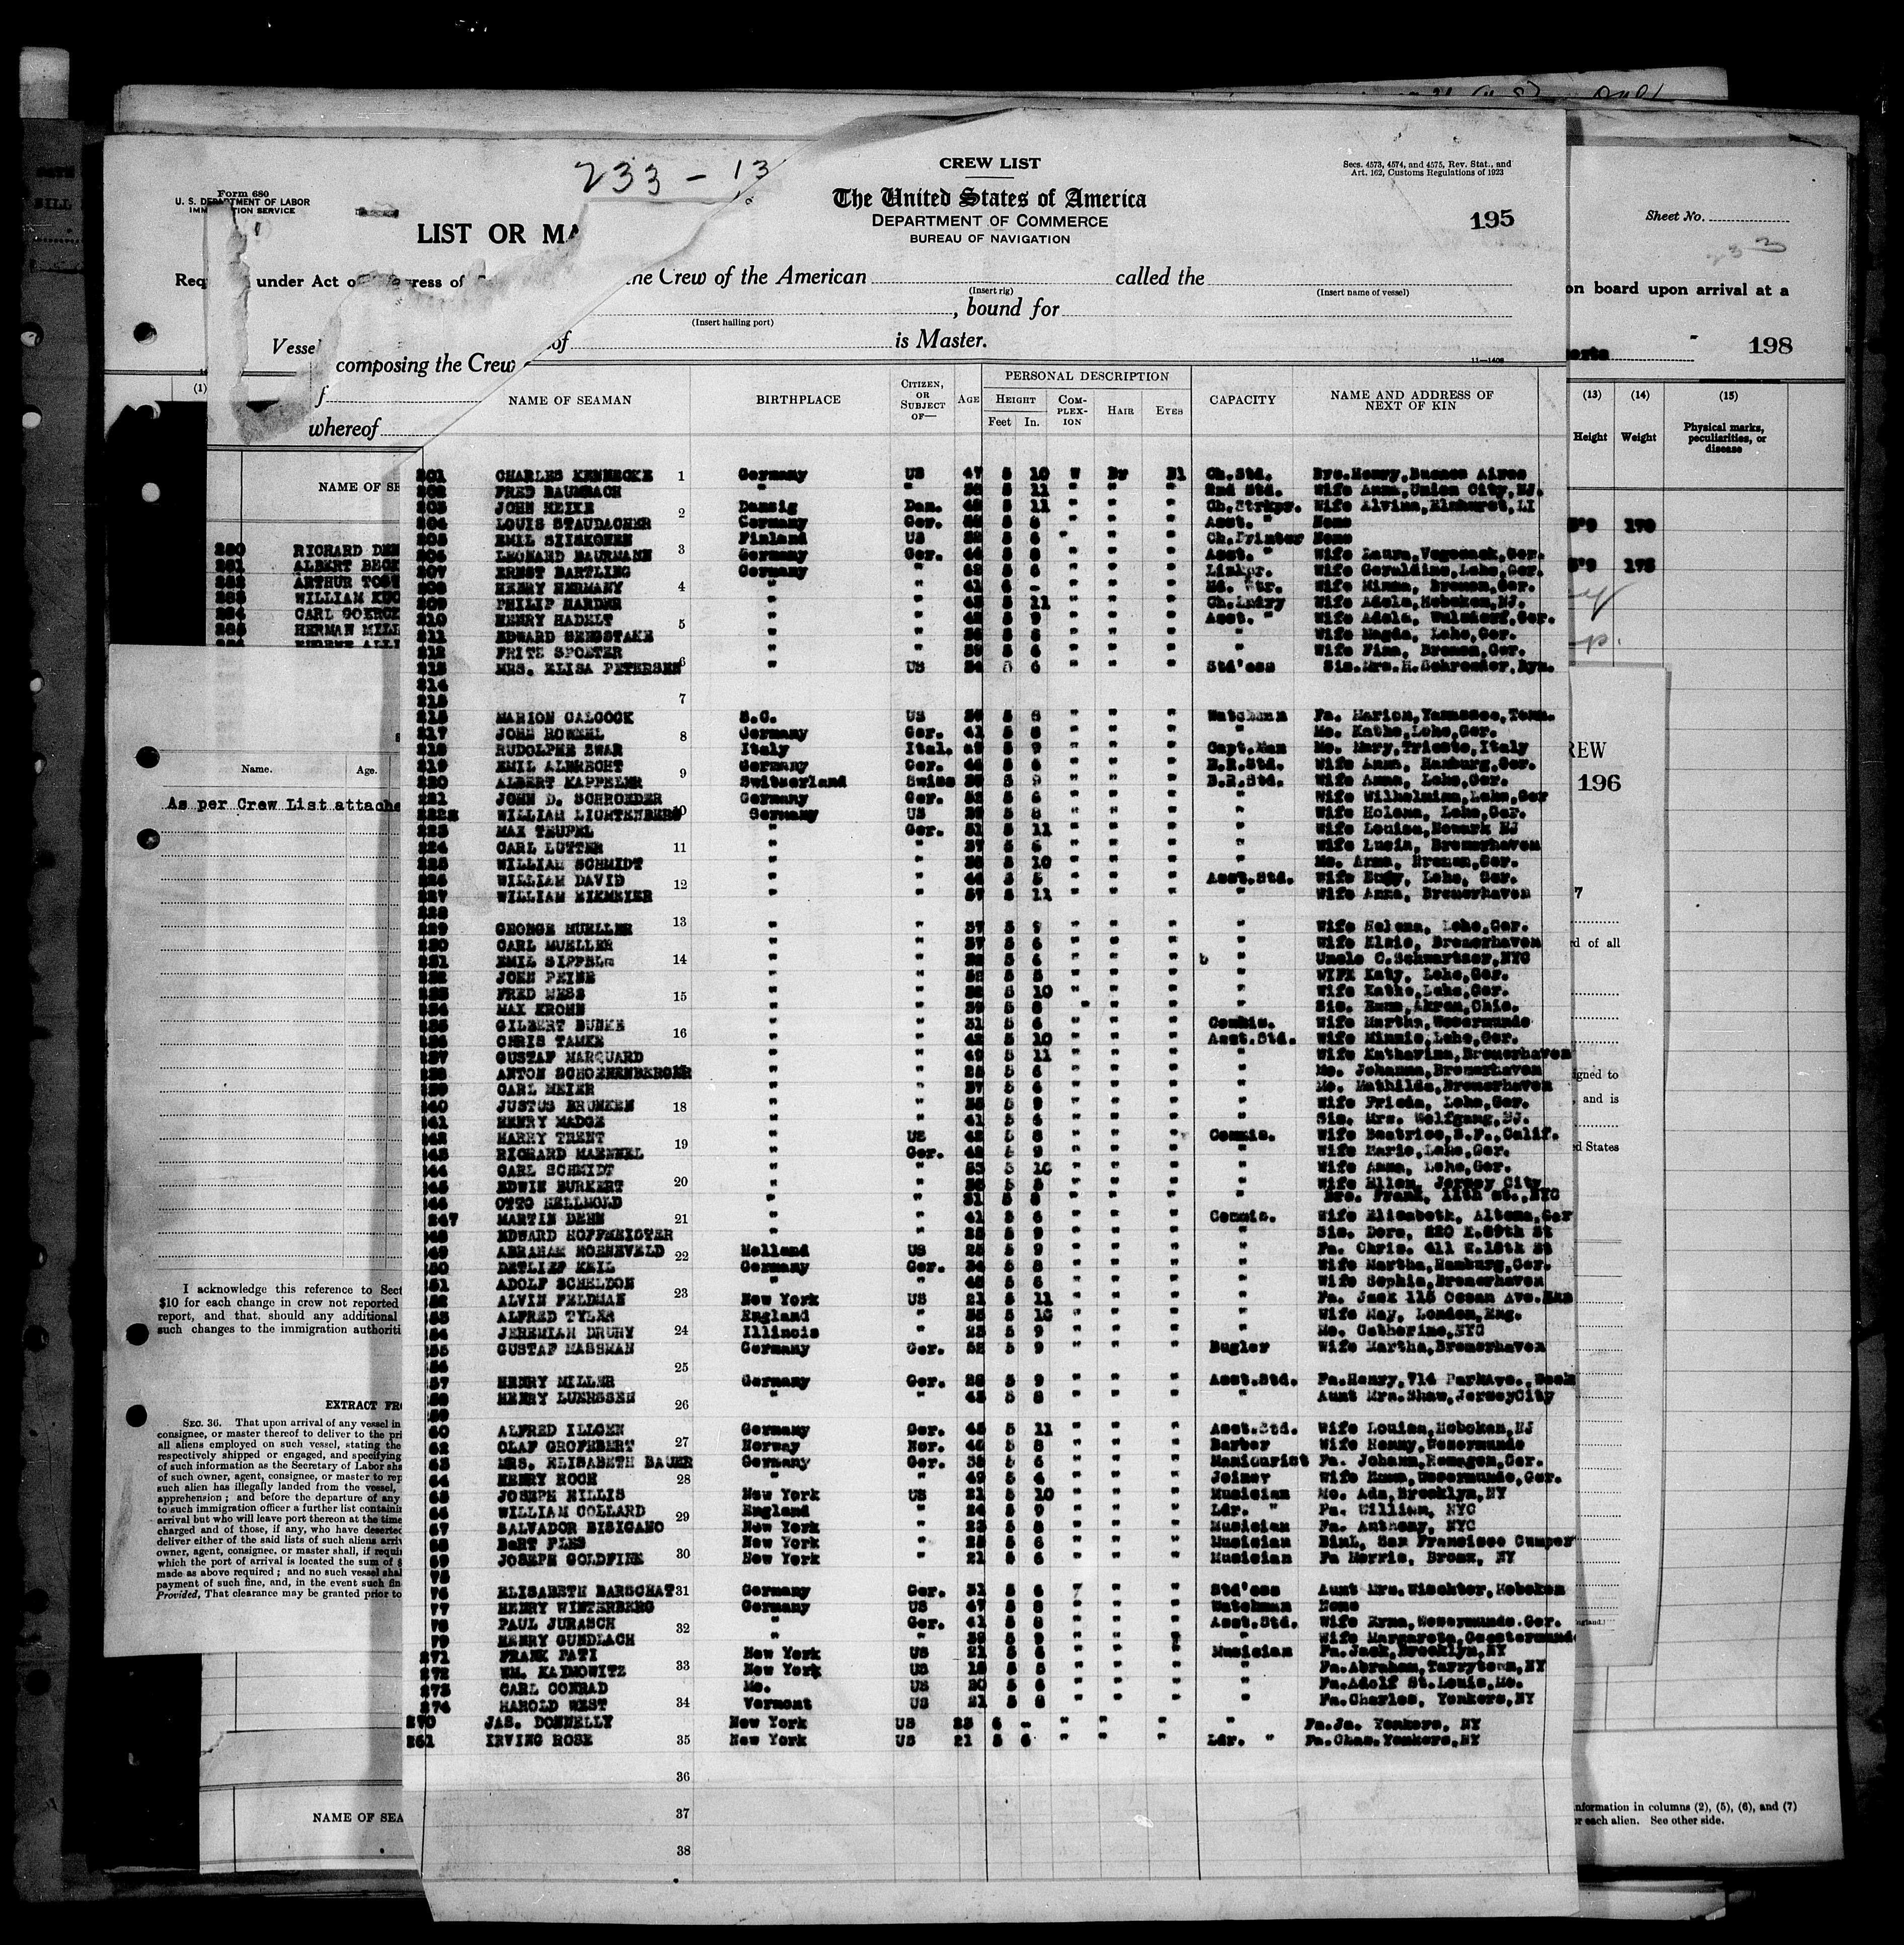 233 - 13
CREW LIST
Secs. 4573, 4574, and 4575, Rev. Stat., and
Art. 162, Customs Regulations of 1923
Form 680
U. S. DEPARTMENT OF LABOR
IMMIGRATION SERVICE
The United States of America
DEPARTMENT OF COMMERCE
BUREAU OF NAVIGATION
195
Sheet No.
LIST OR MA
under Act of
he Crew of the American called the
on board upon arrival at a
(Insert rig) (Insert name of vessel)
, bound for
(Insert hailing port)
Vessel
of is Master.
198
11—1408
composing the Crew
whereof
NAME OF SEAMAN BIRTHPLACE CITIZEN, OR SUBJECT OF— AGE PERSONAL DESCRIPTION HEIGHT Feet In. COMPLEXION HAIR EYES CAPACITY NAME AND ADDRESS OF NEXT OF KIN
(1) (13) (14) (15)
Height Weight Physical marks, peculiarities, or disease
201 CHARLES KENNECKE 1 Germany US 47 5 10 W Br Bl Ch.Std. Bro.Henry,Buenos Aires
202 FRED BAUMBACH " " 5 11 " " " 2nd Std. Wife Anna,Union City,NJ.
203 JOHN MEIKE 2 Danzig Dan. 5 11 " " " Ch.Strkpr. Wife Alvina,Elmhurst,LI
204 LOUIS STAUDACHER Germany Ger. 5 " " " Asst. " None
205 EMIL SIISKONEN Finland US 5 " " " Ch.Printer None
206 LEONARD BAURMANN 3 Germany Ger. 44 5 " " " Asst. " Wife Laura,Vegesack,Ger.
207 ERNST BARTLING Germany " 5 " " " Linkpr. Wife Geraldine,Lehe,Ger.
208 HENRY HERMANY 4 " " 41 6 - " " " Wife Minna, Bremen,Ger.
209 PHILIP HARDER " " 5 11 " " " Ch.Lndry Wife Adela,Hoboken,NJ.
210 HENRY HADELT 5 " " 5 9 " " " Asst. " Wife Adela, Wulsdorf,Ger.
211 EDWARD SENGSTAKE " " 5 " " " " Wife Magda, Lehe,Ger.
212 FRITZ SPOETER " " 5 6 " " " " Wife Fina, Bremen,Ger.
213 MRS. ELISA PETERSEN 6 " US 5 6 Std'ess Sis.Mrs.H.Schroeder,Byn.
214
215 7
MARION CALCOCK S.C. US 5 " " " Watchman Fa. Marion,Yamassee,Tenn.
217 JOHN ROWEHL 8 Germany Ger. 41 5 " " " " Mo. Kathe,Lehe,Ger.
218 RUDOLPHE SWAR Italy Ital. 5 9 " " " Capt.Man Mo. Mary,Trieste,Italy
219 EMIL ALBRECHT 9 Germany Ger. 44 5 " " " B.R.Std. Wife Anna, Hamburg,Ger.
220 ALBERT KAPPELER Switzerland Swiss 5 9 " " " B.R.Std. Wife Anna, Lehe,Ger.
221 JOHN D. SCHROEDER Germany Ger. 5 6 " " " " Wife Wilhelmina,Lehe,Ger
222 WILLIAM LICHTENBERG 10 Germany US 5 8 " " " " Wife Helena, Lehe,Ger.
223 MAX TEUPEL " Ger. 31 5 11 " " " " Wife Louisa,Newark NJ
224 CARL LUTTER 11 " " 37 5 6 " " " " Wife Lucia, Bremerhaven
225 WILLIAM SCHMIDT " " 5 10 " " " " Mo. Anna, Bremen,Ger.
226 WILLIAM DAVID 12 " " 44 5 " " " Asst.Std. Wife Lehe, Ger.
227 WILLIAM EIKMEIER " " 57 5 11 " " " " Wife Anna, Bremerhaven
228
229 GEORGE MUELLER 13 " " 37 5 9 " " " " Wife Helena, Lehe,Ger.
230 CARL MUELLER " " 37 5 6 " " " " Wife Elsie, Bremerhaven
231 EMIL SIPPEL 14 " " 5 6 " " " " Uncle C.Schwartzer,NYC
232 JOHN PEINE " " 5 5 " " " " WIFE Katy, Lehe,Ger.
233 FRED HESS 15 " " 5 10 " " " " Wife Kathe,Lehe,Ger.
234 MAX KROHN " " 39 5 8 " " " " Sis. Emma,Akron,Ohio.
235 GILBERT BUHKE 16 " " 31 5 6 " " " Commis. Wife Martha,Wesermunde
236 CHRIS TAMKE " " 42 5 10 " " " Asst.Std. Wife Minnie,Lehe,Ger.
237 GUSTAF MARQUARD " " 49 5 11 " " " " Wife Katharina,Bremerhaven
238 ANTON SCHOENENBERGER " " 25 5 6 " " " " Mo. Johanna,Bremerhaven
239 CARL MEIER " " 37 5 6 " " " " Mo. Mathilda,Bremerhaven
240 JUSTUS BRUNKEN 18 " " 5 9 " " " " Wife Frieda, Lehe,Ger.
241 HENRY MADGE " " 41 5 6 " " " " Sis. Mrs. Wolfgang,NJ.
242 HARRY TRENT 19 " US 42 5 8 " " " Commis. Wife Beatrice,S.F.,Calif.
243 RICHARD MAENNEL " Ger. 42 5 9 " " " " Wife Marie,Lehe,Ger.
244 CARL SCHMIDT " " 53 5 10 " " " " Wife Anna, Lehe,Ger.
245 EDWIN BURKERT 20 " " 5 5 " " " " Wife Ellen, Jersey City
246 OTTO HELLMOLD " " 31 5 8 " " " " Bro. Frank, 11th st.,NYC
247 MARTIN DEHN 21 " " 41 5 6 " " " Commis. Wife Elisabeth, Altona,Ger
48 EDWARD HOFFMEISTER " " 25 5 9 " " " " Sis. Dora, 220 E.89th St
49 ABRAHAM NORNEVELD 22 Holland US 25 5 9 " " " " Fa. Chris. 411 W.18th St
50 DETLIEF KEIL Germany Ger. 34 5 8 " " " " Wife Martha,Hamburg,Ger.
51 ADOLF SCHELDON " " 5 6 " " " " Wife Sophia,Bremerhaven
52 ALVIN FELDMAN 23 New York US 21 5 11 " " " " Fa. Jack 115 Ocean Ave.
53 ALFRED TYLER England " 5 10 " " " " Wife May, London,Eng.
54 JEREMIAH DRURY 24 Illinois " 23 5 9 " " " " Mo. Catherine,NYC
55 GUSTAF MASSMAN Germany Ger. 52 5 9 " " " Bugler Wife Martha,Bremerhaven
56 25
57 HENRY MILLER Germany Ger. 28 5 9 " " " Asst.Std. Fa.Henry,714 ParkAve.
58 HENRY LUERSSEN 26 " " 45 5 8 " " " " Aunt Mrs.Shaw,JerseyCity
59
60 ALFRED ILLGEN Germany Ger. 45 5 11 " " " Asst.Std. Wife Louisa,Hoboken,NJ
62 OLAF GROFEBERT 27 Norway Nor. 40 5 8 " " " Barber Wife Henny,Wesermunde
63 MRS. ELISABETH BAUER Germany Ger. 5 6 " " " Manicurist Fa. Johann,Remagen,Ger.
64 HENRY KOCH 28 " " 49 5 6 " " " Joiner Wife Emma,Wesermunde,Ger.
65 JOSEPH HILLIS New York US 21 5 10 " " " Musician Mo. Ada,Brooklyn,NY
66 WILLIAM COLLARD 29 England " 24 5 9 " " " Ldr. " Fa. William, NYC
67 SALVADOR BISIGANO New York " 23 5 8 " " " Musician Fa. Anthony, NYC
68 BeRT PLES New York " 25 5 6 " " " Musician San Francisco
69 JOSEPH GOLDFIEE 30 New York " 21 5 6 " " " Musician Fa Morris, Bronx, NY
75
76 ELISABETH BARSCHAT 31 Germany Ger. 31 5 6 " " Std'ess Aunt Mrs.Wischter,Hoboken
77 HENRY WINTERBERG Germany US 47 5 8 " " " Watchman None
78 PAUL JURASCH 32 " Ger. 41 5 8 " " " Asst.Std. Wife Erna,Wesermunde.Ger.
79 HENRY GUNDLACH " " 39 5 9 " " " Wife Margarete,Geestermunde
271 FRANK PATI New York US 21 5 6 " " " Musician Fa.Jack,Brooklyn,NY
272 WM. KAIMOWITZ 33 New York US 18 5 5 " " " " Fa.Abraham,Tarrytown,NY
273 CARL CONRAD Mo. US 20 5 6 " " " " Fa.Adolf St.Louis,Mo.
274 HAROLD WEST 34 Vermont US 21 5 8 " " " " Fa.Charles, Yonkers,NY
270 JAS. DONNELLY New York US 23 6 - " " " " Fa.Ja. Yonkers, NY
261 IRVING ROSE 35 New York US 21 5 6 " " " Ldr. " Fa.Chas.Yonkers,NY
36
37
38
NAME OF SE
RICHARD DEN
ALBERT BECK
ARTHUR TOST
WILLIAM KUC
CARL GOERCK
HERMAN MILL
5'9 170
5'9 175
Name. Age.
As per Crew List attache
REW
196
7
rd of all
igned to
, and is
ed States
I acknowledge this reference to Sect
$10 for each change in crew not reported
report, and that. should any additional
such changes to the immigration authoriti
EXTRACT FRO
SEC. 36. That upon arrival of any vessel in
consignee, or master thereof to deliver to the pri
all aliens employed on such vessel, stating the
respectively shipped or engaged, and specifying
of such information as the Secretary of Labor sha
of such owner, agent, consignee, or master to rep
such alien has illegally landed from the vessel,
apprehension ; and before the departure of any
to such immigration officer a further list containi
arrival but who will leave port thereon at the time
charged and of those, if any, who have deserted
deliver either of the said lists of such aliens arriv
owner, agent, consignee, or master shall, if requi
which the port of arrival is located the sum of $
made as above required ; and no such vessel shal
payment of such fine, and, in the event such fin
Provided, That clearance may be granted prior to
NAME OF SEA
nformation in columns (2), (5), (6), and (7)
or each alien. See other side.